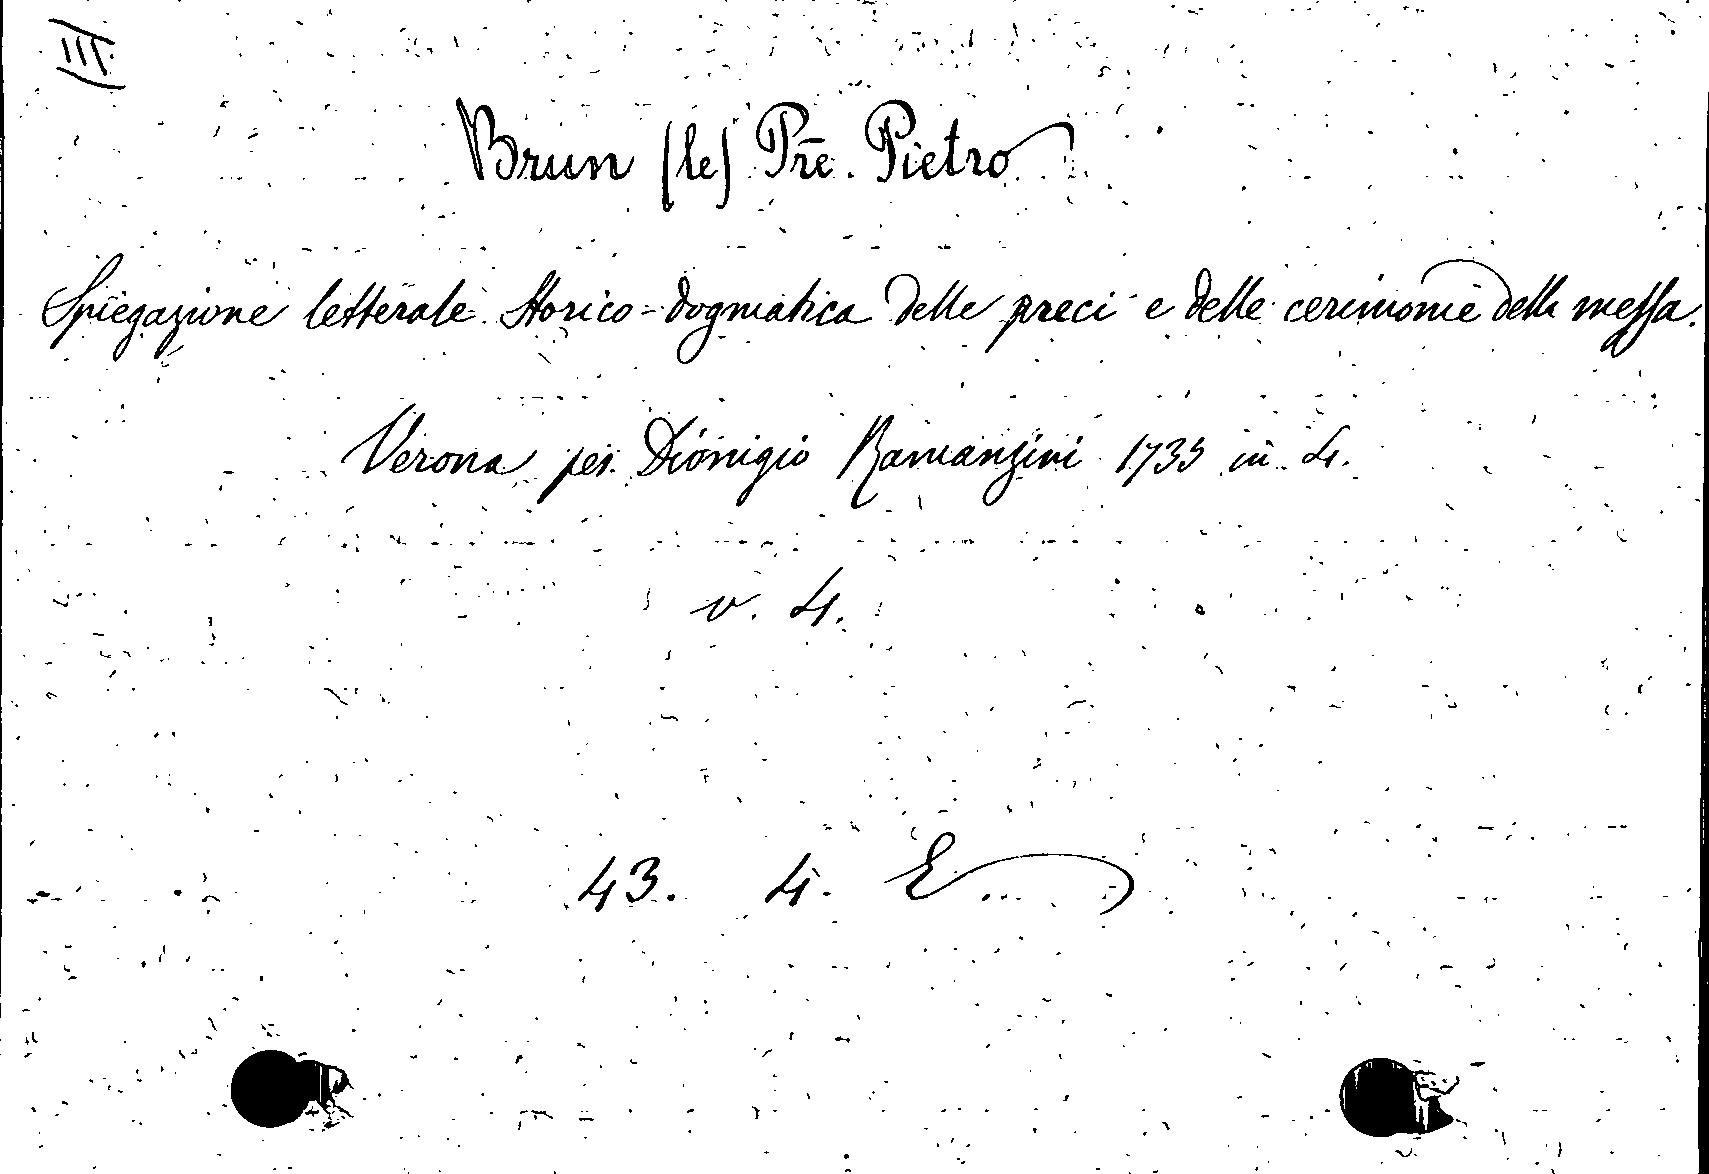 III
Brun (le) Prē. Pietro
Spiegazione letterale storico-dogmatica delle preci e delle cerimonie della messa.
Verona per Dionigio Ramanzini 1735 in 4.
v. 4.
43. 4. E